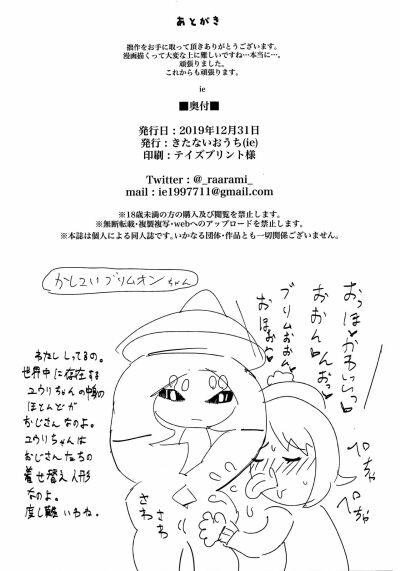 あとがき
拙作をお手に取って頂きありがとうございます。
漫画描くって大変な上に難しいですね…本当に…。
頑張りました。
これからも頑張ります。
ie
■奥付■
発行日：2019年12月31日
発行：きたないおうち(ie)
印刷：テイズプリント様
Twitter：@_raarami_
mail：ie1997711@gmail.com
※18歳未満の方の購入及び閲覧を禁止します。
※無断転載・複製複写・webへのアップロードを禁止します。
※本誌は個人による同人誌です。いかなる団体・作品とも一切関係ございません。
かしこいブリムオンちゃん
おっほ♥かわいいっ
おおん♥んおっ♥
ブリムおおん
おほおっ
わたししってるの。
世界中に存在する
ユウリちゃんの中身の
ほとんどが
おじさんなのよ。
ユウリちゃんは
おじさんたちの
着せ替え人形
なのよ。
度し難いわね。
さわ
さわ
ぺちゃ
ぺちゃ